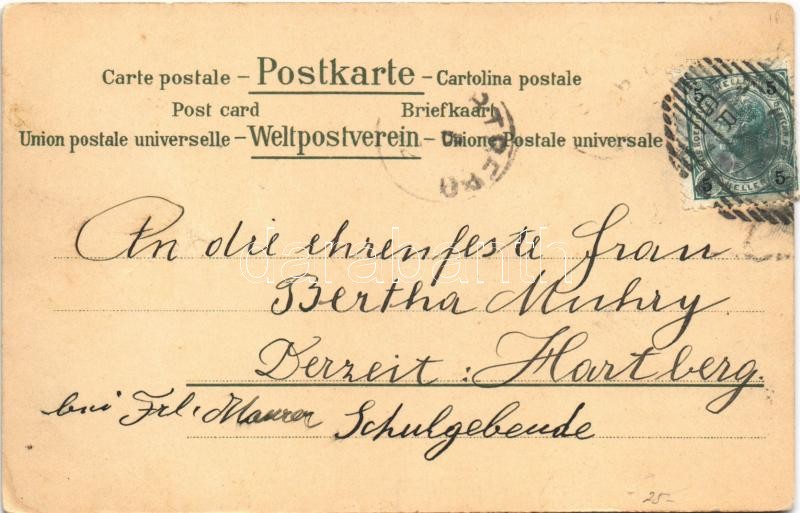 Carte postale – Postkarte – Cartolina postale
Post card Briefkaart
Union postale universelle – Weltpostverein – Unione Postale universale
5 5
5 5
An die ehrenfeste Frau
darabanth
Bertha Muhry
Derzeit: Hartberg.
bei Frl. Maurer Schulgebende
25-